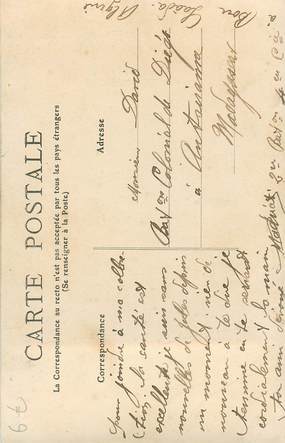 CARTE POSTALE
La Correspondance au recto n'est pas acceptée par tous les pays étrangers
(Se renseigner à la Poste)
Correspondance
Adresse
pour joindre à ma collec-
tion, la santé est
excellente je suis sans
nouvelles de Jules depuis
un moment, rien de
nouveau à te dire je
termine en te serrant
cordialement la main
ton ami
Monsieur David
Colonial de Diégo
à Antsirana
Madagascar
Bou Saada Algérie
6€